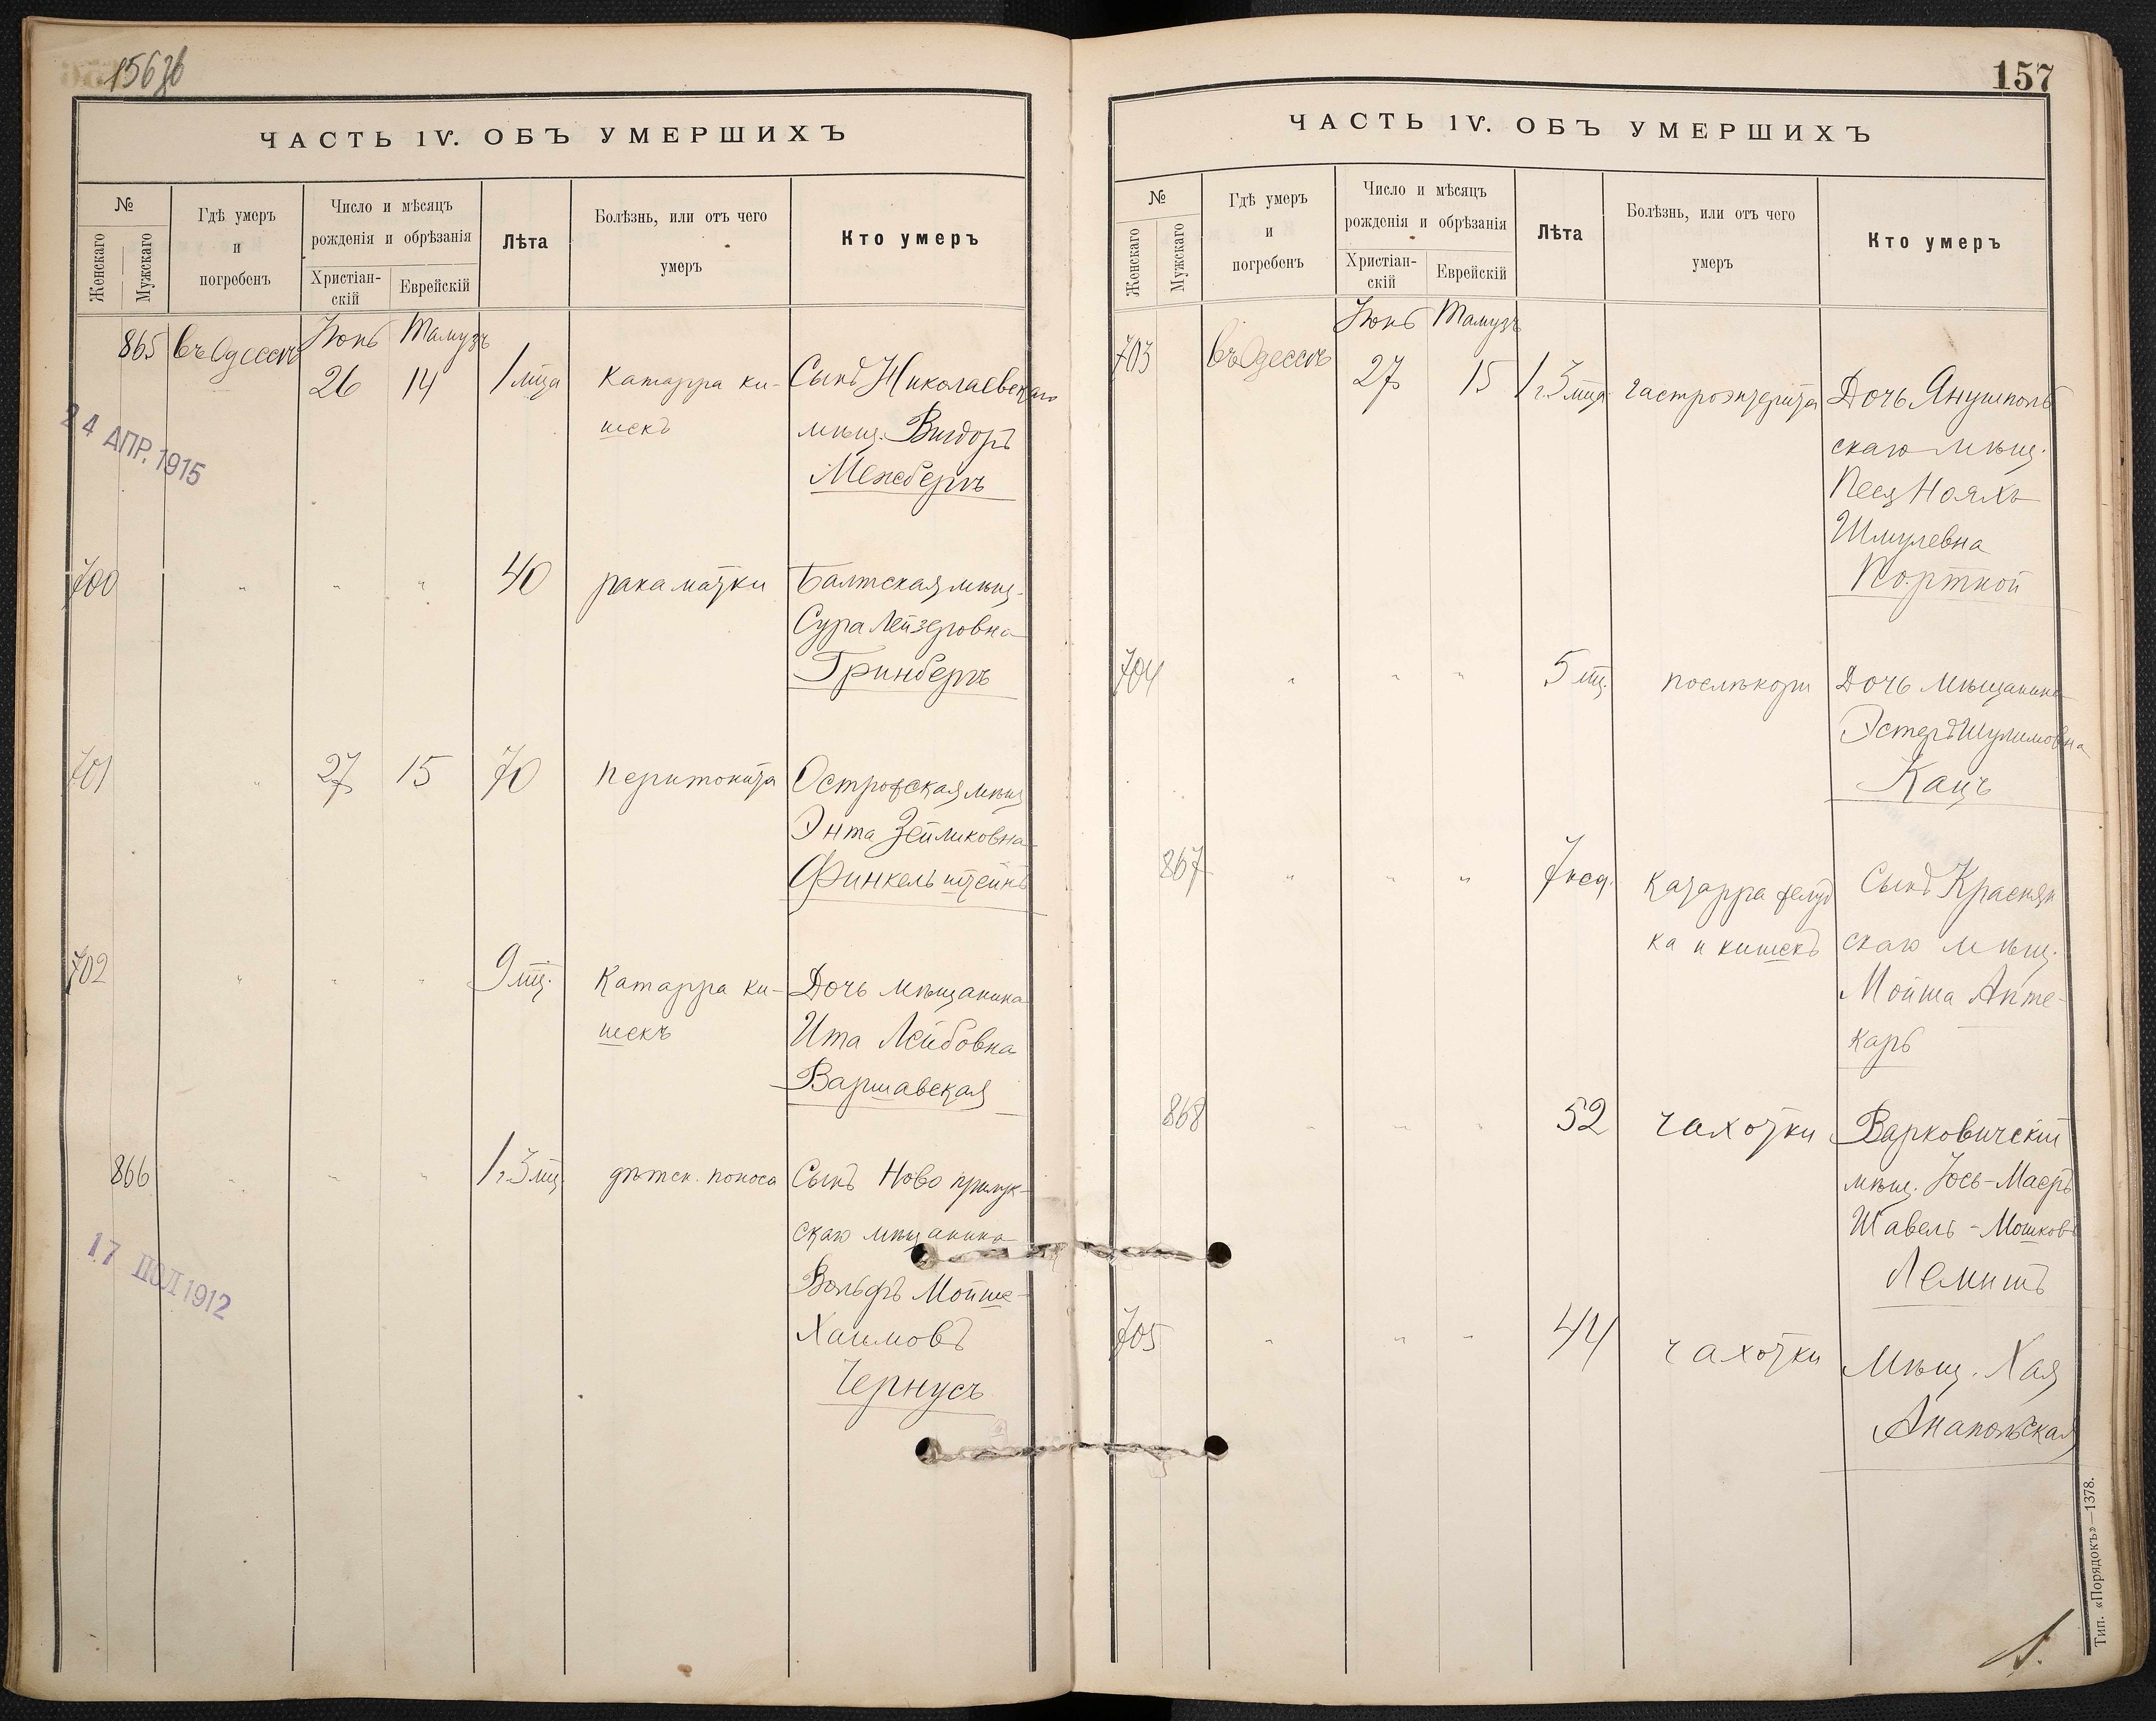 156 об
ЧАСТЬ IV. ОБЪ УМЕРШИХЪ
№
Женскаго
Мужскаго
Гдѣ умеръ
и
погребенъ
Число и мѣсяцъ
рожденія и обрѣзанія
Христіан-
скій
Еврейскій
Лѣта
Болѣзнь, или отъ чего
умеръ
Кто умеръ
Іюнь Тамузъ
865 въ Одессѣ 26 14 1 мца Катарра ки- Сынъ Николаевскаго
шекъ мѣщ. Вигдоръ
Менсбергъ
24 АПР. 1915
700 " " " 40 рака матки Балтская мѣщ.
Сура Лейзеровна
Гринбергъ
701 " 27 15 70 перитонита Острожская мѣщ
Энта Зейликовна
Финкельштейнъ
702 " " " 9 мц. Катарра ки- Дочь мѣщанина
шекъ Ита Лейбовна
Варшавская
866 " " " 1 г. 3 мц. дѣтск. поноса Сынъ Ново прилук-
скаго мѣщанина
Вольфъ Мойше-
Хаимовъ
Чернусъ
1912
157
ЧАСТЬ IV. ОБЪ УМЕРШИХЪ
№
Женскаго
Мужскаго
Гдѣ умеръ
и
погребенъ
Число и мѣсяцъ
рожденія и обрѣзанія
Христіан-
скій
Еврейскій
Лѣта
Болѣзнь, или отъ чего
умеръ
Кто умеръ
Іюнь Тамузъ
703 въ Одессѣ 27 15 1 г. 3 мца гастроэнтерита Дочь Янушполь
скаго мѣщ.
Песя Нояхъ
Шмулевна
Порткой
704 " " " 5 мц. послѣ кори Дочь мѣщанина
Эстеръ Шулимовна
Кацъ
867 " " " 7 нед. Катарра желуд Сынъ Краснян
ка и кишекъ скаго мѣщ.
Мойша Апте-
карь
868 " " " 52 чахотки Варковичскій
мѣщ. Іось-Маеръ
Шавель-Мошковъ
Лемишъ
705 " " " 44 чахотки Мѣщ. Хая
Анапольская
Тип. «Порядокъ»—1378.